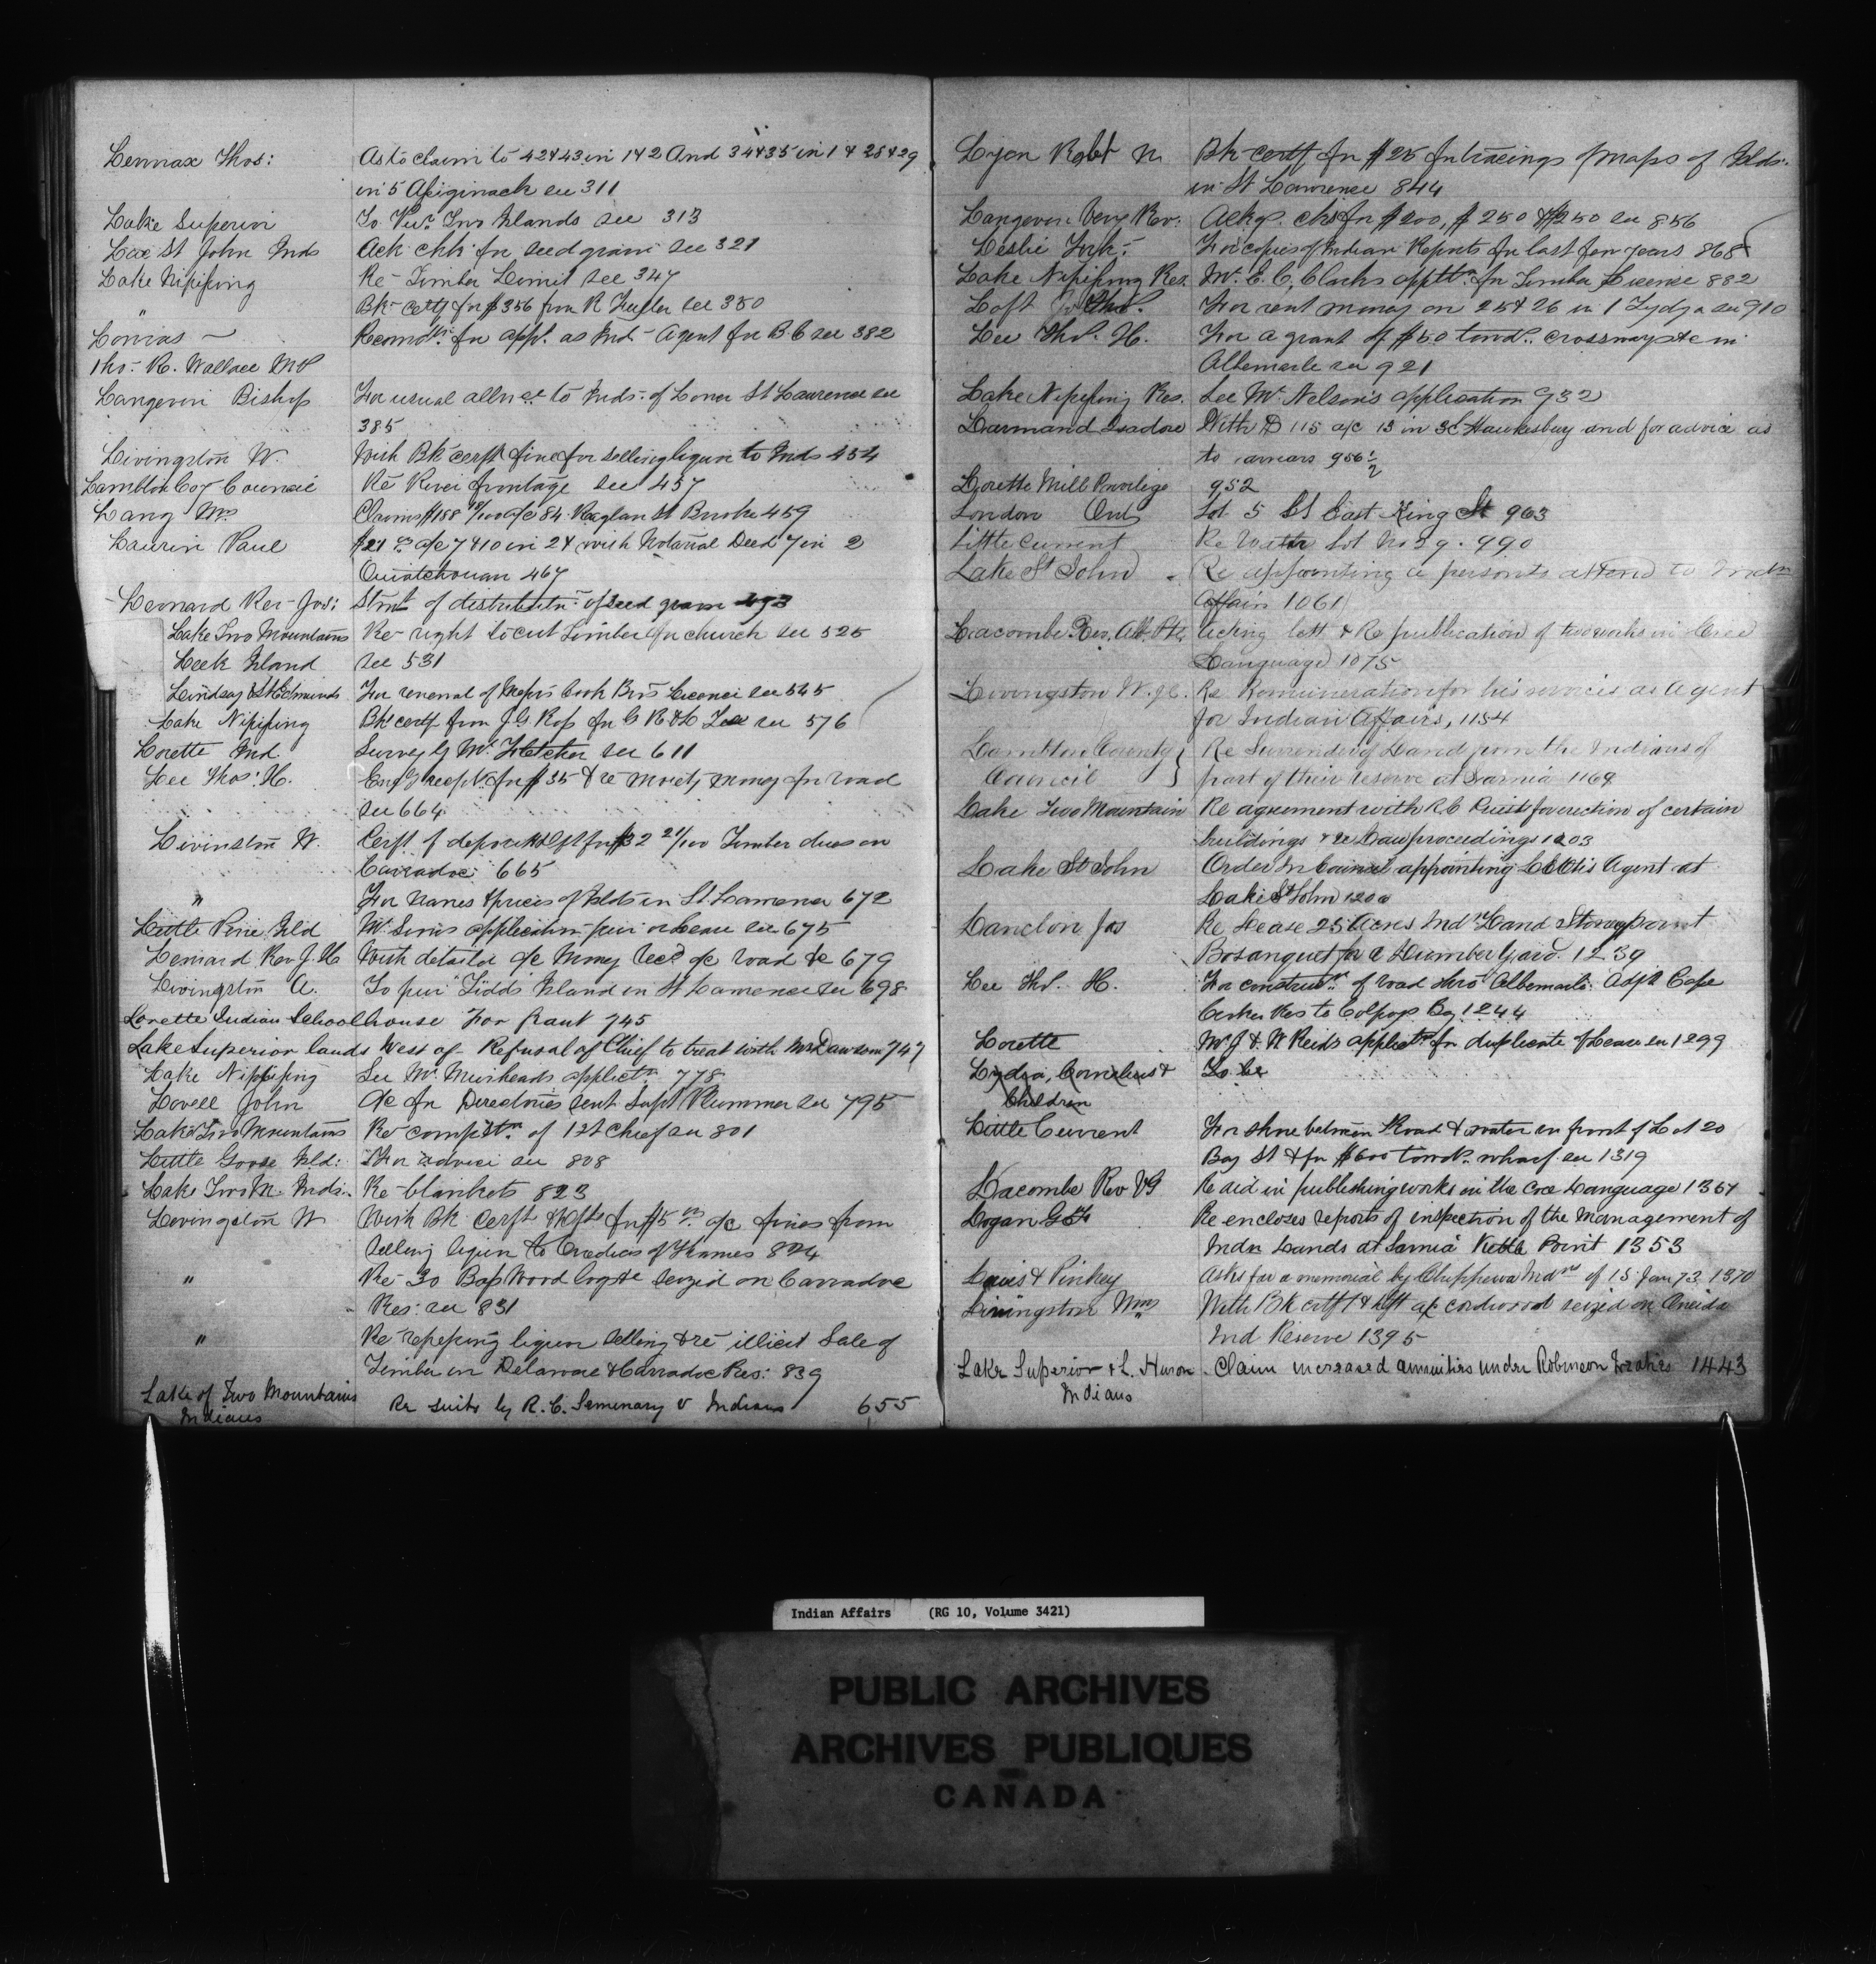 Lennax Thos: As to claim to 42 & 43 in 1 & 2 And 34 & 35 in 1 & 28 & 29
in 5 Assiginack see 311
Lake Superior To Pur. Two Islands see 313
Lac St John Inds Ack chk for seed grain see 321
Lake Nipissing Re Timber Limit see 347
" Bk certf for $356 from R see 350
Lomas Recomds for appt. as Ind Agent for B.C see 382
Thos. R. Wallace MP
Langevin Bishop For usual allnce to Inds. of Lower St Lawrence see
385
Livingston W. With Bk cerft fine for selling liquor to Inds 454
Lambton Coy Council Re River frontage see 457
Lang Mrs Claims $188 a/c 84 Raglan St Brooke 459
Laurin Paul $21 a/c 7 & 10 in 2 & with Notarial Deed 7 in 2
Ouiatchouan 467
Lernard Rev Jos: Stmt of distributn. of seed grain 493
Lake Two Mountains Re right to cut Timber for church see 525
Leek Island see 531
Lindsay & St Edmunds For renewal of Messrs Cook Bros Licence see 545
Lake Nipissing Bk certf from J G Ross for G R & Co see 576
Lorette Ind Survey by Mr Fletcher see 611
Lee Thos: H. Encg recpt for $35 & re moiety money for road
see 664
Livinston W. Cerft of deposit for $32 21/100 Timber dues on
Carradoc 665
" For names & prices of Islds in St. Lawrence 672
Little Pine Isld Mr Sims application pur or Lease see 675
Lernard Rev J. H With detailed a/c Money Recd a/c road &c 679
Livingston A. To pur Tidds Island in St Lawrence see 698
Lorette Indian Schoolhouse For Grant 745
Lake Superior lands West of - Refusal of Chief to treat with Mr Dawson 747
Lake Nipissing See Mr Muirheads applictn. 778
Lovell John a/c for Directories sent Supt Plummer see 795
Lake Two Mountains Re compltn of 1st Chief see 801
Little Goose Isld: For advice see 808
Lake Two M. Inds. Re blankets 823
Livingston W With Bk Cerft & for $5 a/c fines from
selling liquor to Oneidas of Thames 824
" Re 30 Bass Wood logs &c seized on Carradoc
Res: see 831
" Re liquor selling & re illicit Sale of
Timber on Delaware & Carradoc Res: 839
Lake of Two Mountains Re suits by R. C. Seminary v Indians 655
Indians
Lyon Robt N Bk certf for $25 for tracings of maps of Islds.
in St Lawrence 844
Langevin Very Rev. Ackg. chks for $200, $250 & $250 see 856
Leslie Jos. For copies of Indian Reports for last few years 868
Lake Nipissing Res. Mr. E. C. Clarks applctn. for Timber Licence 882
Loft Jos. For rent money on 25 & 26 in 1 Tydga see 910
Lee Thos. H. For a grant of $50 towds. crossways &c in
Albemarle see 921
Lake Nipissing Res. See Mr. Nelson's application 932
Larmand Isadore With D 115 a/c 13 in 3C Hawkesbury and for advice as
to arrears 956 1/2
Lorette Mill Privilege 952
London Ont Lot 5 East King St 963
Little Current Re Water Lot No 29. 990
Lake St John Re appointing a person to attend to Indn
Affairs 1061
Lacombe Rev. Alb. Acking lett & Re publication of two works in Cree
Language 1075
Livingston W. Re Remuneration for his services as Agent
for Indian Affairs, 1154
Lambton County } Re Surrender of Land from the Indians of
Council part of their reserve at Sarnia 1169
Lake Two Mountain Re agreement with R.C Priest for erection of certain
buildings & re Law proceedings 1203
Lake St John Order in Council appointing L E Otis Agent at
Lake St John 1200
Lanclon Jas Re Lease 25 Acres Indn Land Stoney point
Bosanquet for a Lumber Yard. 1239
Lee Thos. H. For constructn of road thro' Albemarle Adjg Cape
Croker Res to Colpoys Bay 1244
Lorette W J & W Reids applictn for duplicate of Lease see 1299
Lydia, Cornelius & To be
Children
Little Current For shore between Road & water in front of Lot 20
Bay St & for $600 towds. wharf see 1319
Lacombe Rev VG Re aid in publishing works in the Cree Language 1351
Logan G Re encloses reports of inspection of the Management of
Indn Lands at Sarnia Kettle Point 1353
Lewis & Pinkey Asks for a memorial by Chippewa Indns of 15 Jany 73 1370
Livingston Wm With Bk certf & a/c cordwood seized on Oneida
Ind Reserve 1395
Lake Superior & L. Huron Claim increased annuities under Robinson Treaties 1443
Indians
Indian Affairs (RG 10, Volume 3421)
PUBLIC ARCHIVES
ARCHIVES PUBLIQUES
CANADA